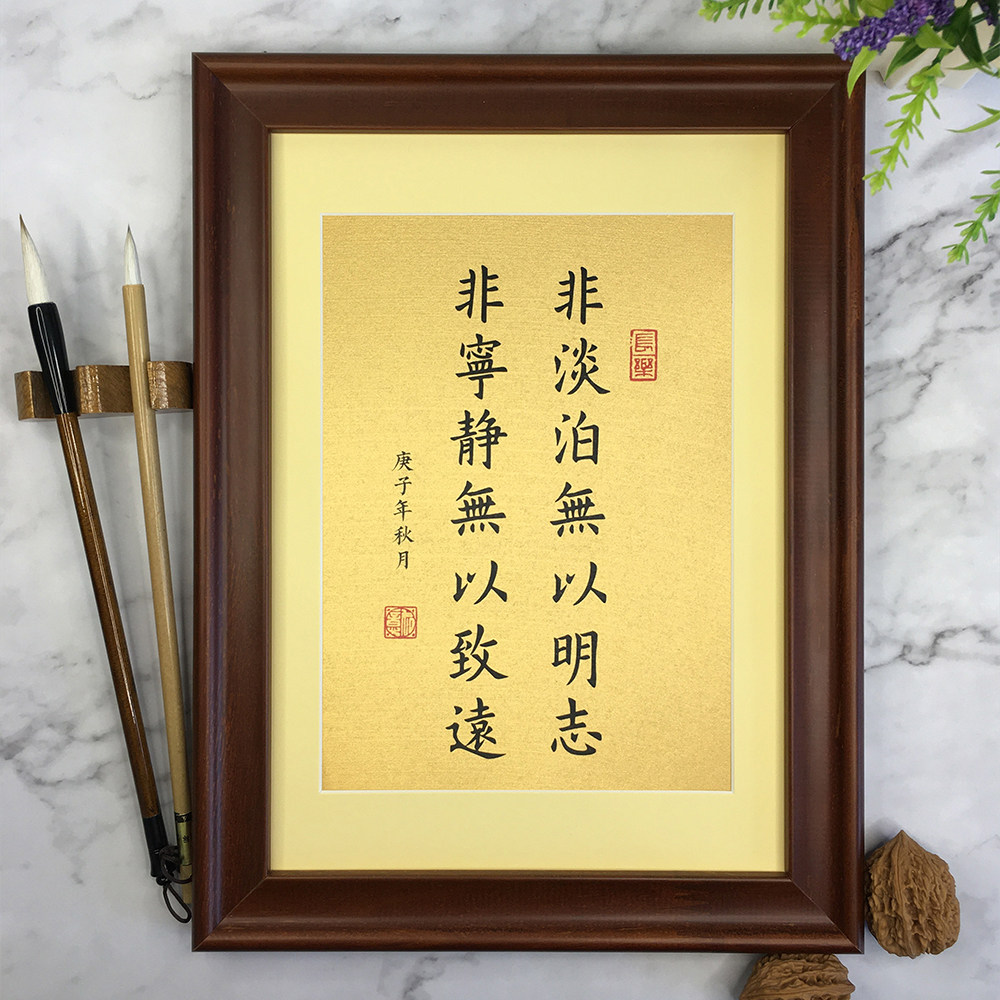 長樂
非淡泊無以明志
非寧静無以致遠
庚子年秋月